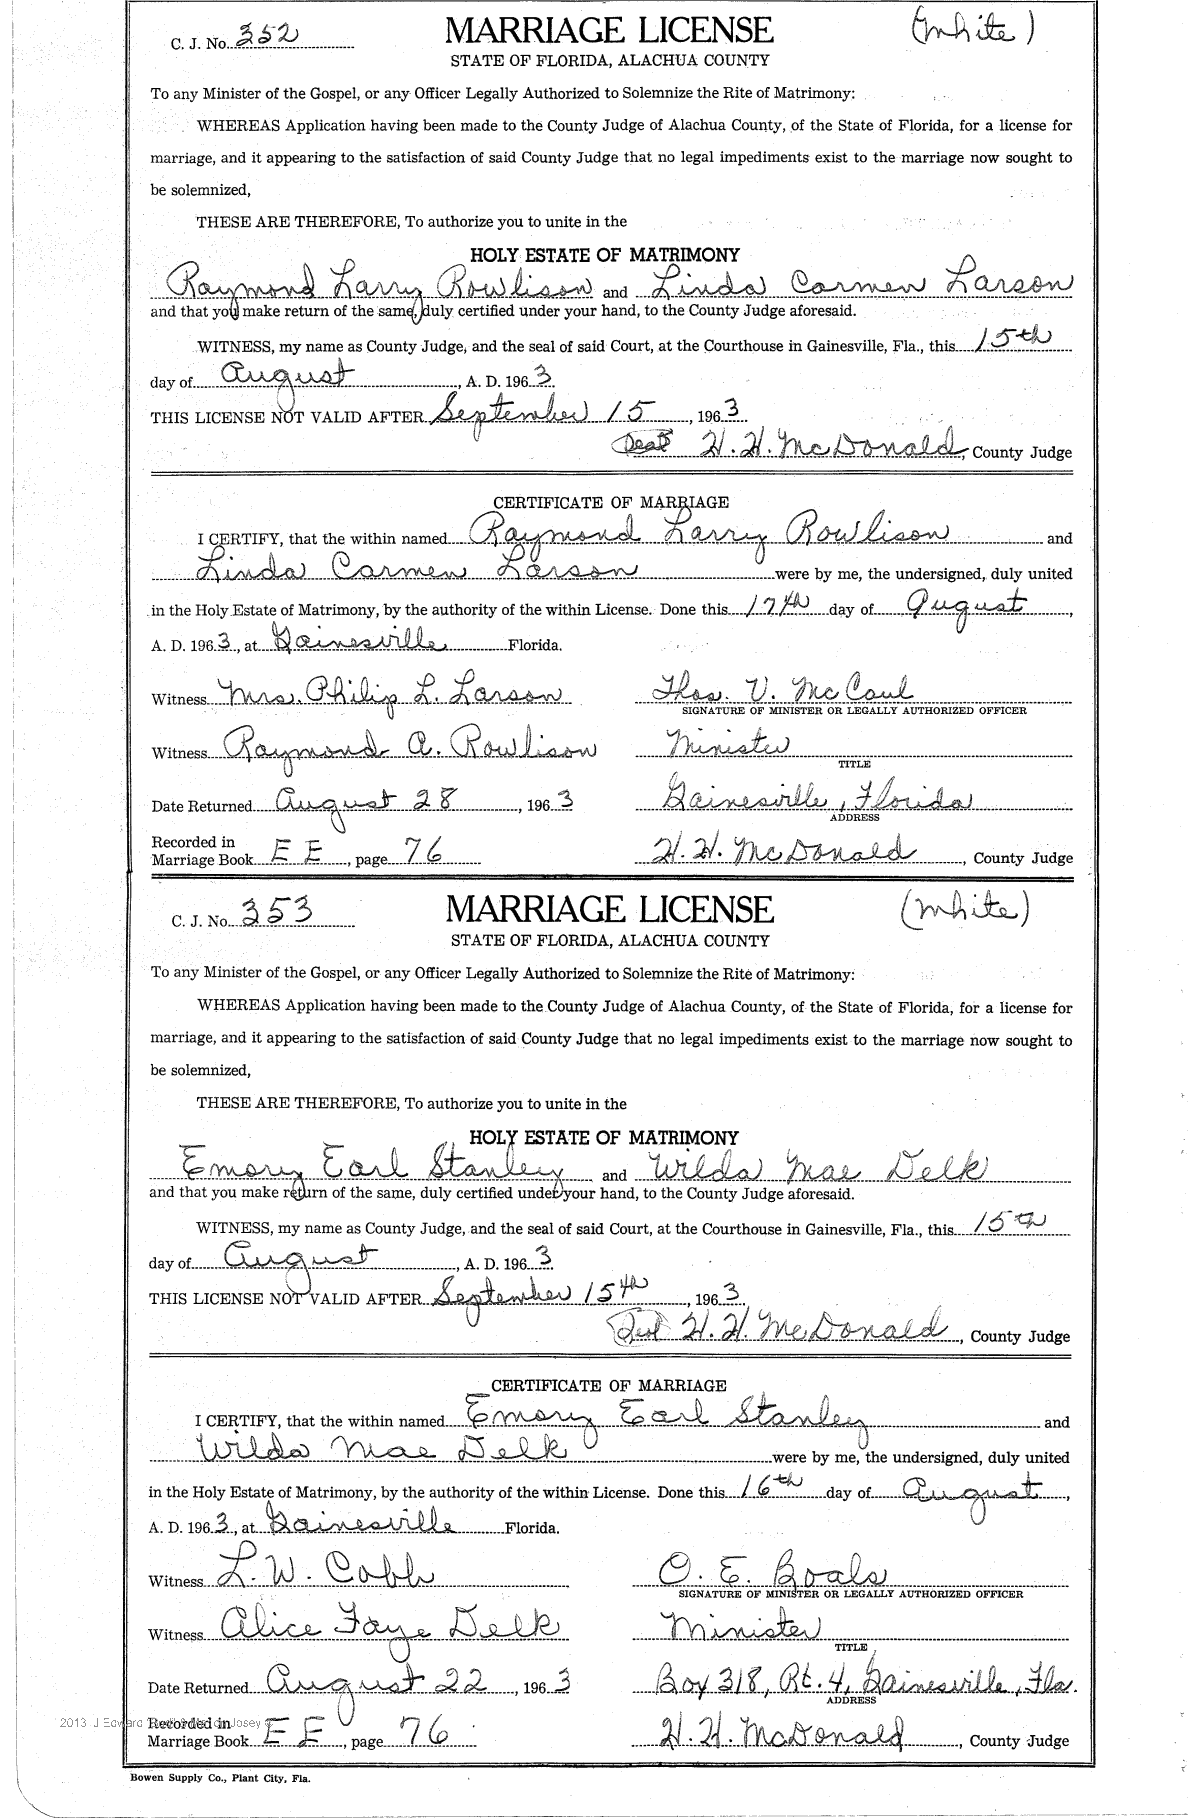 C. J. No. 352 MARRIAGE LICENSE (White)
STATE OF FLORIDA, ALACHUA COUNTY
To any Minister of the Gospel, or any Officer Legally Authorized to Solemnize the Rite of Matrimony:
WHEREAS Application having been made to the County Judge of Alachua County, of the State of Florida, for a license for
marriage, and it appearing to the satisfaction of said County Judge that no legal impediments exist to the marriage now sought to
be solemnized,
THESE ARE THEREFORE, To authorize you to unite in the
HOLY ESTATE OF MATRIMONY
Raymond Larry Rowlison and Linda Carmen Larson
and that you make return of the same, duly certified under your hand, to the County Judge aforesaid.
WITNESS, my name as County Judge, and the seal of said Court, at the Courthouse in Gainesville, Fla., this 15th
day of August, A. D. 1963
THIS LICENSE NOT VALID AFTER September 15, 1963
Seal H. H. McDonald, County Judge
CERTIFICATE OF MARRIAGE
I CERTIFY, that the within named Raymond Larry Rowlison and
Linda Carmen Larson were by me, the undersigned, duly united
in the Holy Estate of Matrimony, by the authority of the within License. Done this 17th day of August,
A. D. 1963, at Gainesville Florida.
Witness Mrs. Philip L. Larson Thos. V. McCaul
SIGNATURE OF MINISTER OR LEGALLY AUTHORIZED OFFICER
Witness Raymond A. Rowlison Minister
TITLE
Date Returned August 28, 1963 Gainesville, Florida
ADDRESS
Recorded in
Marriage Book EE, page 76 H. H. McDonald, County Judge
C. J. No. 353 MARRIAGE LICENSE (White)
STATE OF FLORIDA, ALACHUA COUNTY
To any Minister of the Gospel, or any Officer Legally Authorized to Solemnize the Rite of Matrimony:
WHEREAS Application having been made to the County Judge of Alachua County, of the State of Florida, for a license for
marriage, and it appearing to the satisfaction of said County Judge that no legal impediments exist to the marriage now sought to
be solemnized,
THESE ARE THEREFORE, To authorize you to unite in the
HOLY ESTATE OF MATRIMONY
Emory Earl Stanley and Wilda Mae Delk
and that you make return of the same, duly certified under your hand, to the County Judge aforesaid.
WITNESS, my name as County Judge, and the seal of said Court, at the Courthouse in Gainesville, Fla., this 15th
day of August, A. D. 1963
THIS LICENSE NOT VALID AFTER September 15th, 1963
Seal H. H. McDonald, County Judge
CERTIFICATE OF MARRIAGE
I CERTIFY, that the within named Emory Earl Stanley and
Wilda Mae Delk were by me, the undersigned, duly united
in the Holy Estate of Matrimony, by the authority of the within License. Done this 16th day of August,
A. D. 1963, at Gainesville Florida.
Witness L. W. Cobb O. E. Boals
SIGNATURE OF MINISTER OR LEGALLY AUTHORIZED OFFICER
Witness Alice Faye Delk Minister
TITLE
Date Returned August 22, 1963 Box 318, Rt. 4, Gainesville, Fla.
ADDRESS
2013 J Edward Josey
Recorded in
Marriage Book EE, page 76 H. H. McDonald, County Judge
Bowen Supply Co., Plant City, Fla.